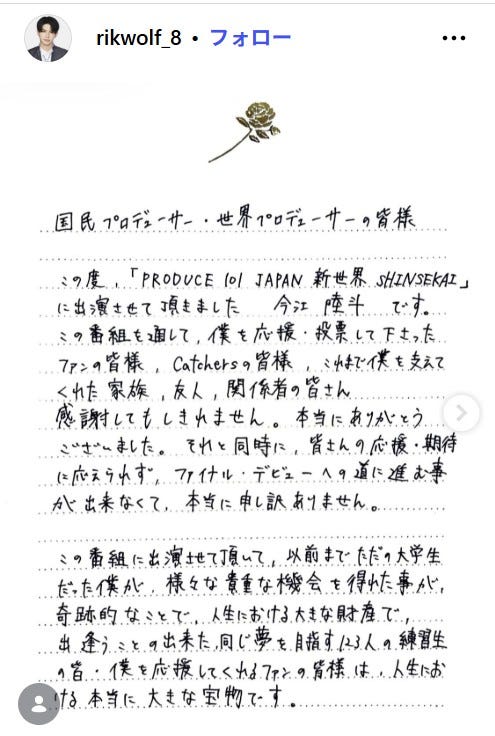 rikwolf_8 • フォロー
国民プロデューサー・世界プロデューサーの皆様
この度、「PRODUCE 101 JAPAN 新世界 SHINSEKAI」
に出演させて頂きました 今江 陸斗 です。
この番組を通して、僕を応援・投票して下さった
ファンの皆様、Catchersの皆様、これまで僕を支えて
くれた家族、友人、関係者の皆さん
感謝してもしきれません。本当にありがとう
ございました。それと同時に、皆さんの応援・期待
に応えられず、ファイナル・デビューへの道に進む事
が出来なくて、本当に申し訳ありません。
この番組に出演させて頂いて、以前までただの大学生
だった僕が、様々な貴重な機会を得れた事が、
奇跡的なことで、人生における大きな財産で、
出逢うことの出来た同じ夢を目指す123人の練習生
の皆・僕を応援してくれるファンの皆様は、人生にお
ける本当に大きな宝物です。